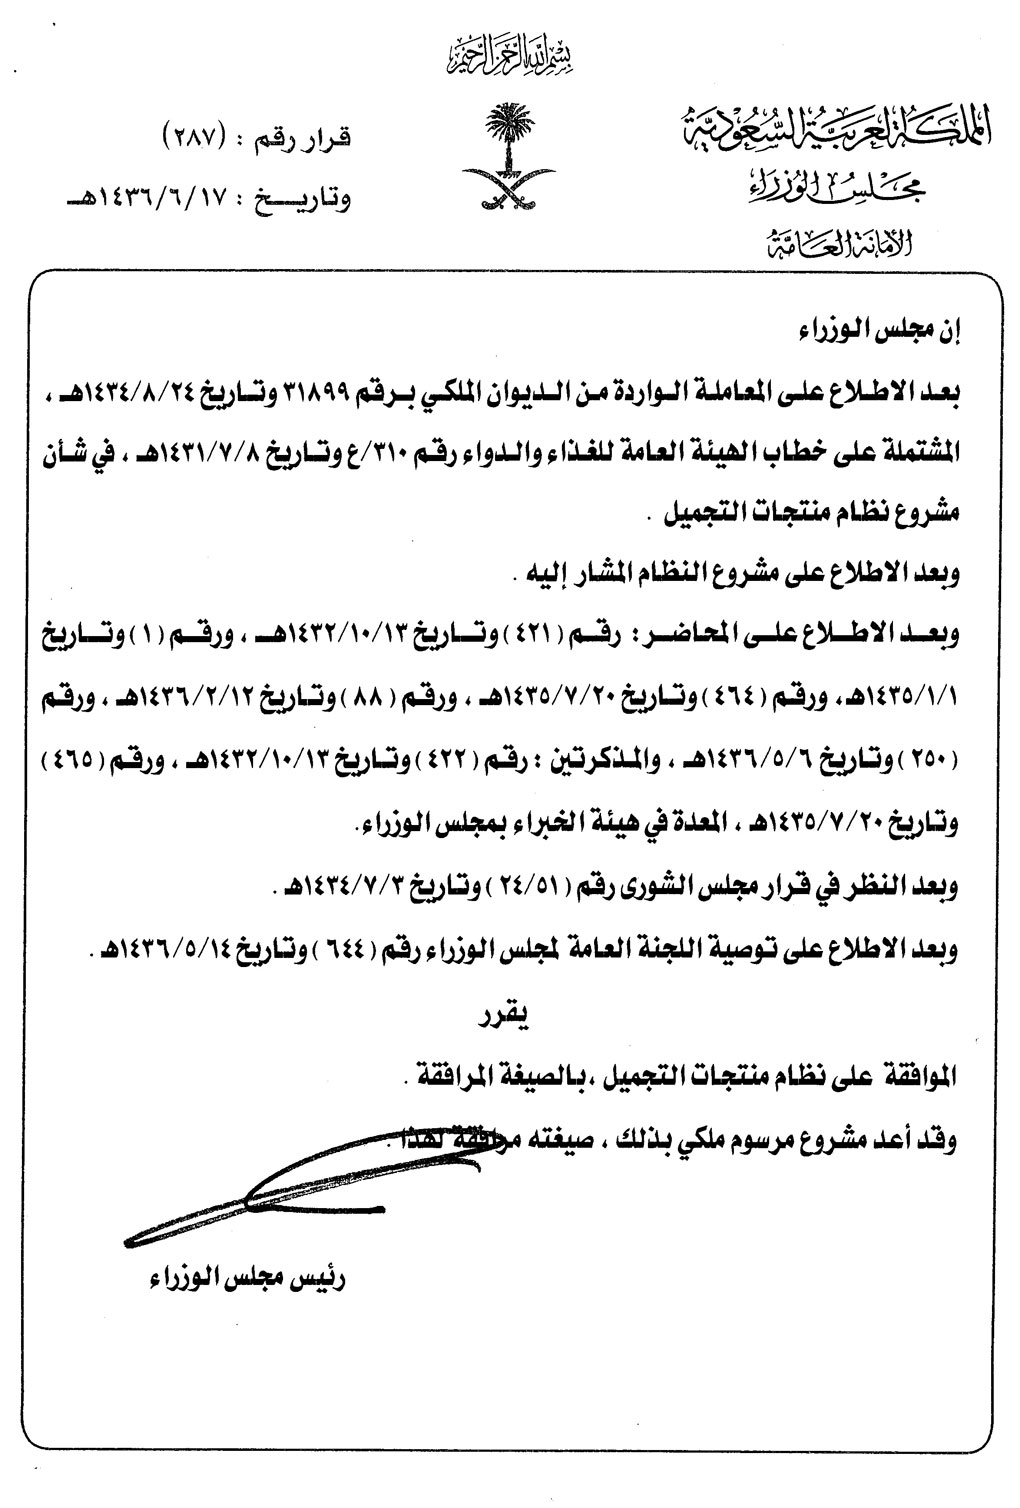 بسم الله الرحمن الرحيم
المملكة العربية السعودية
مجلس الوزراء
الأمانة العامة
قرار رقم : (٢٨٧)
وتاريـــخ : ١٤٣٦/٦/١٧هـ
إن مجلس الوزراء
بعد الاطلاع على المعاملة الواردة من الديوان الملكي برقم ٣١٨٩٩ وتاريخ ١٤٣٤/٨/٢٤هـ ،
المشتملة على خطاب الهيئة العامة للغذاء والدواء رقم ٣١٠/ع وتاريخ ١٤٣١/٧/٨هـ ، في شأن
مشروع نظام منتجات التجميل .
وبعد الاطلاع على مشروع النظام المشار إليه .
وبعد الاطلاع على المحاضر : رقم (٤٢١) وتاريخ ١٤٣٢/١٠/١٣هـ ، ورقم (١) وتاريخ
١٤٣٥/١/١هـ، ورقم (٤٦٤) وتاريخ ١٤٣٥/٧/٢٠هـ ، ورقم (٨٨) وتاريخ ١٤٣٦/٢/١٢هـ ، ورقم
(٢٥٠) وتاريخ ١٤٣٦/٥/٦هـ ، والمذكرتين : رقم (٤٢٢) وتاريخ ١٤٣٢/١٠/١٣هـ ، ورقم (٤٦٥)
وتاريخ ١٤٣٥/٧/٢٠هـ ، المعدة في هيئة الخبراء بمجلس الوزراء.
وبعد النظر في قرار مجلس الشورى رقم (٢٤/٥١) وتاريخ ١٤٣٤/٧/٣هـ .
وبعد الاطلاع على توصية اللجنة العامة لمجلس الوزراء رقم (٦٤٤) وتاريخ ١٤٣٦/٥/١٤هـ .
يقرر
الموافقة على نظام منتجات التجميل ، بالصيغة المرافقة .
وقد أعد مشروع مرسوم ملكي بذلك ، صيغته مرافقة لهذا .
رئيس مجلس الوزراء